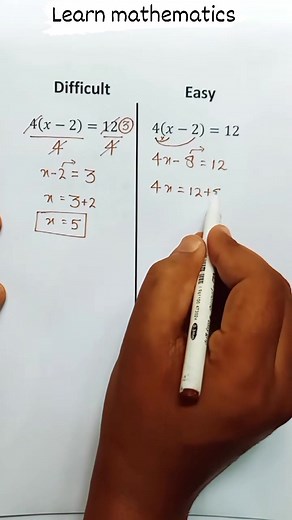 Learn mathematics
Difficult
4(x − 2) = 12 3
4 4
x-2 = 3
x = 3+2
x = 5
Easy
4(x − 2) = 12
4x - 8 = 12
4x = 12+